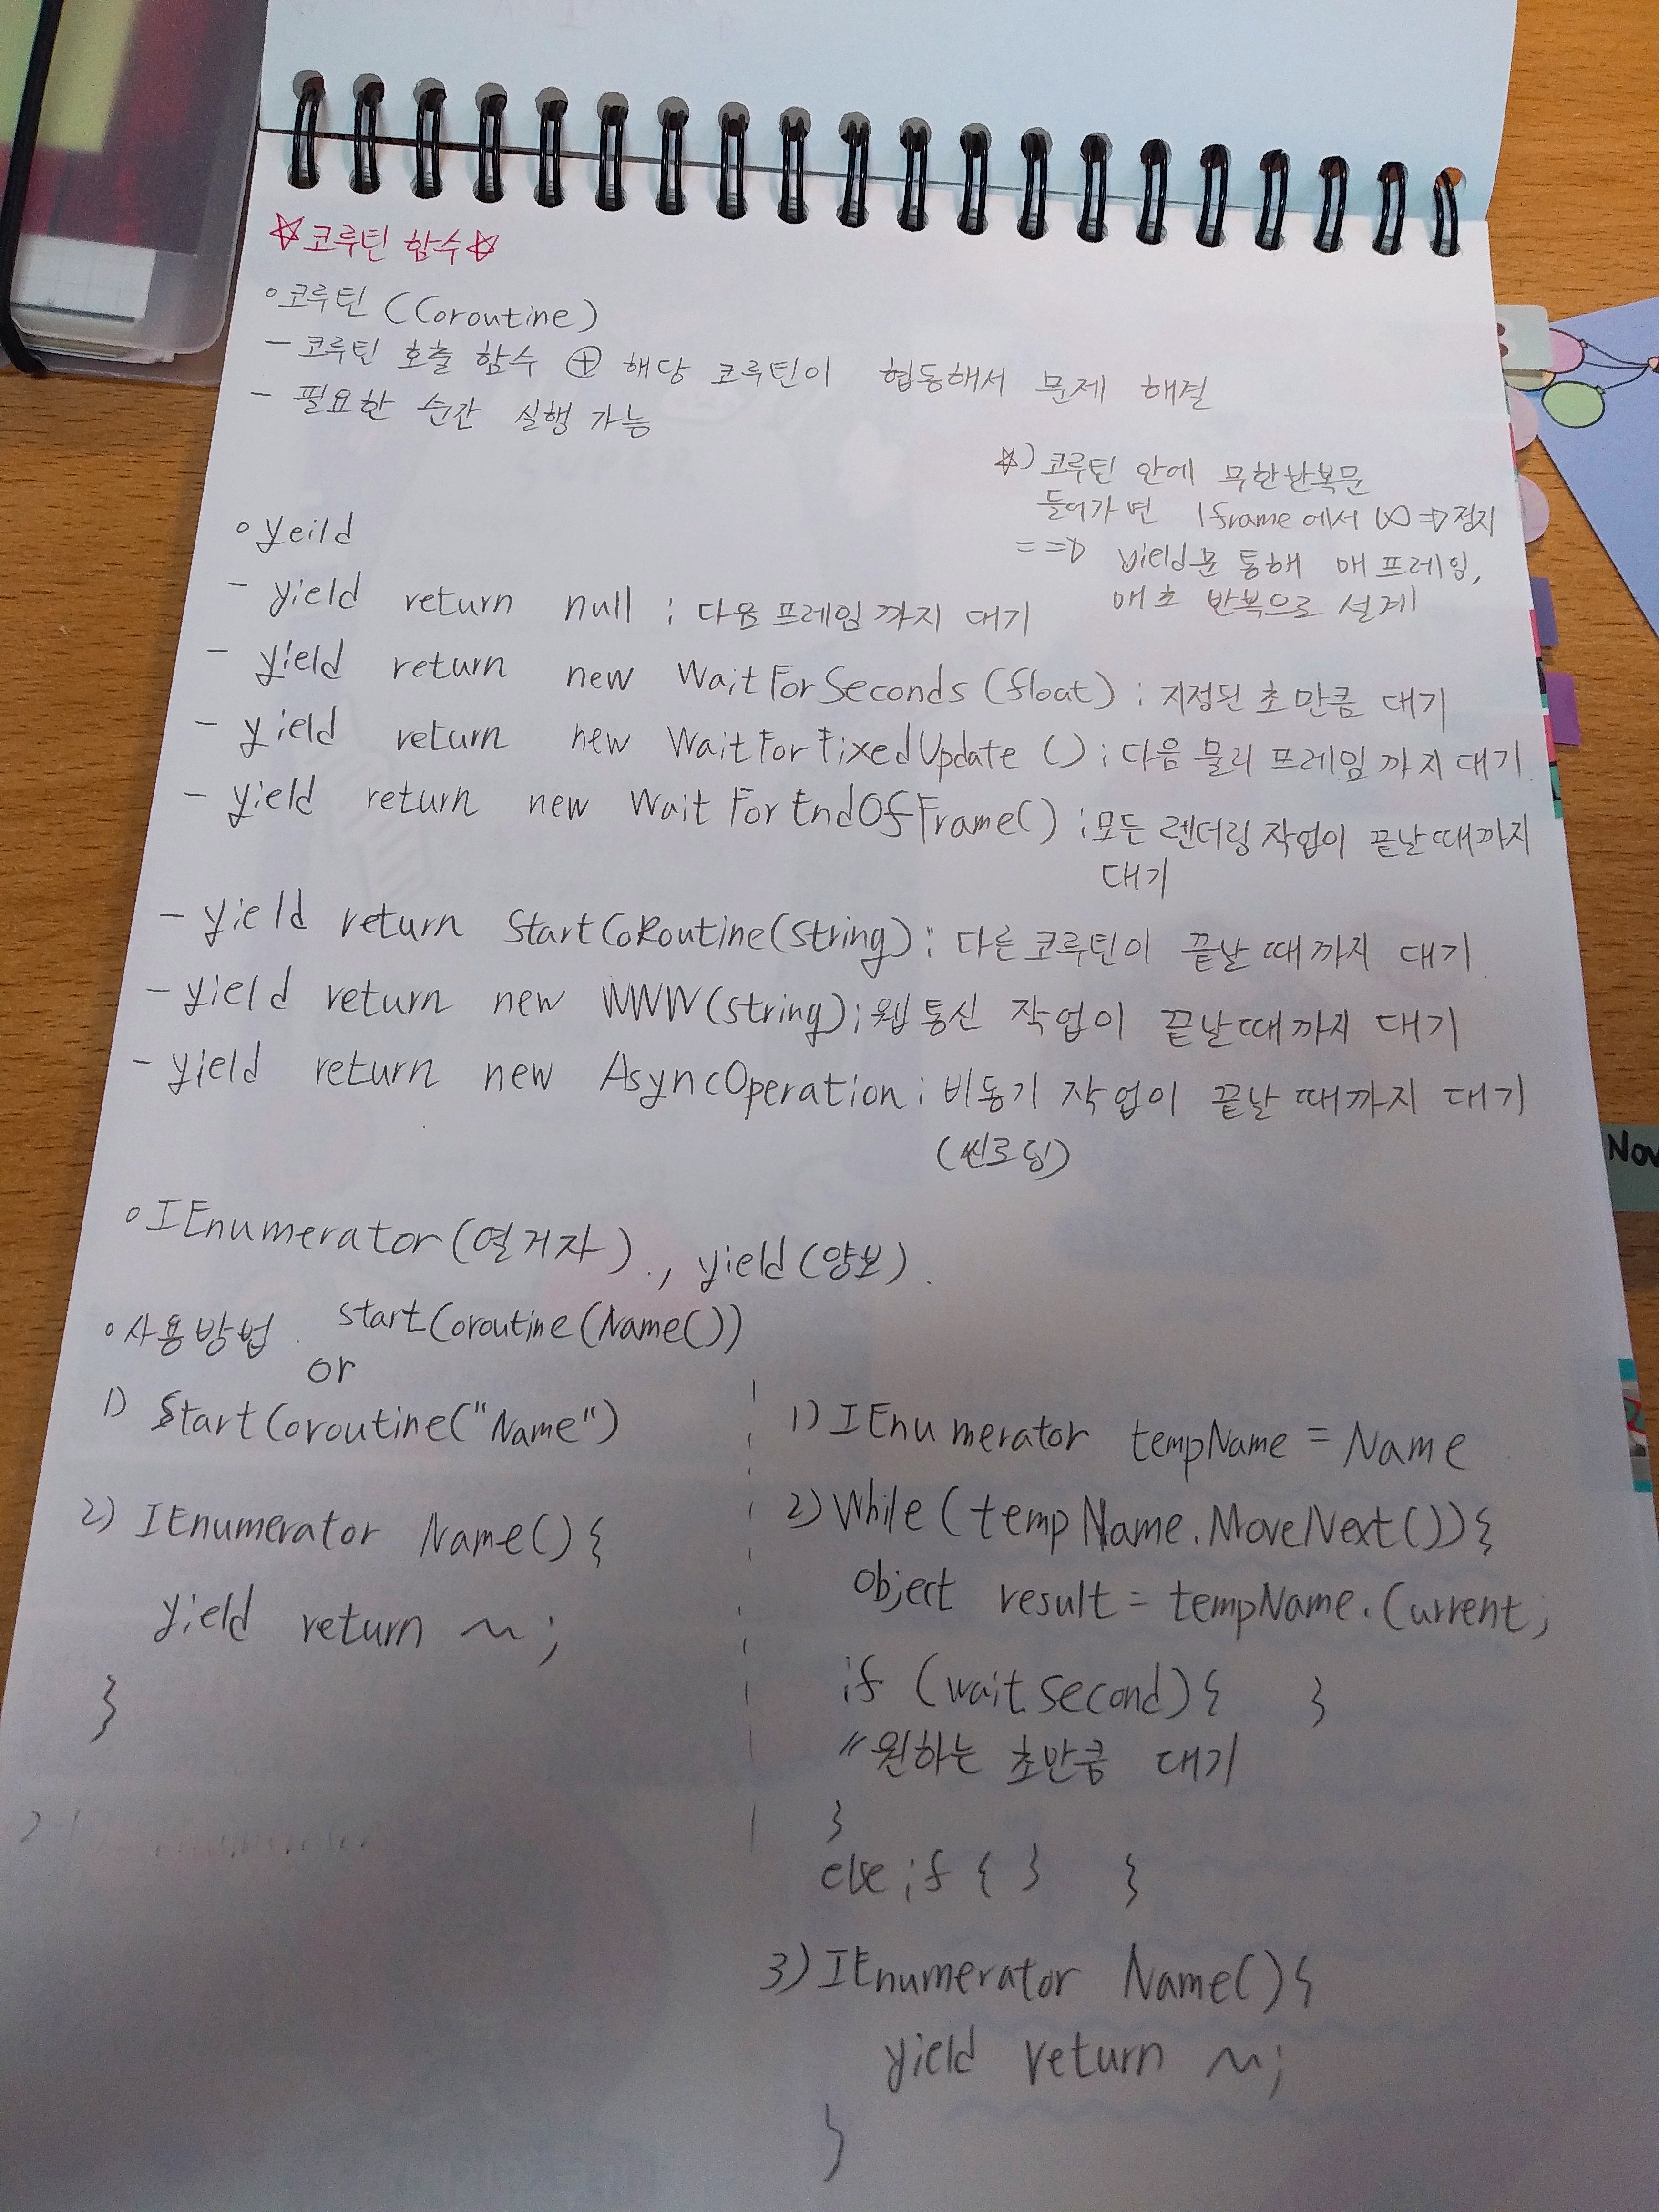 ☆코루틴 함수☆
◦코루틴 (Coroutine)
- 코루틴 호출 함수 ⊕ 해당 코루틴이 협동해서 문제 해결
- 필요한 순간 실행 가능
☆) 코루틴 안에 무한반복문
들어가면 1frame에서 ∞ => 정지
==> yield문 통해 매 프레임,
매초 반복으로 설계
◦yeild
- yield return null ; 다음프레임까지 대기
- yield return new WaitForSeconds(float) ; 지정된 초만큼 대기
- yield return new WaitForFixedUpdate () ; 다음 물리 프레임까지 대기
- yield return new WaitForEndOfFrame() ; 모든 렌더링 작업이 끝날때까지
대기
- yield return StartCoRoutine(string) ; 다른코루틴이 끝날때까지 대기
- yield return new WWW(string) ; 웹통신 작업이 끝날때까지 대기
- yield return new AsyncOperation ; 비동기 작업이 끝날때까지 대기
(씬로딩)
◦IEnumerator(열거자)., yield(양보).
◦사용방법. startCoroutine(Name())
or
1) StartCoroutine("Name")
2) IEnumerator Name(){
yield return ~;
}
1) IEnumerator tempName = Name
2) While(tempName.MoveNext()){
object result = tempName.Current;
if (waitsecond){ }
//원하는 초만큼 대기
}
else if { } }
3) IEnumerator Name(){
yield return ~;
}